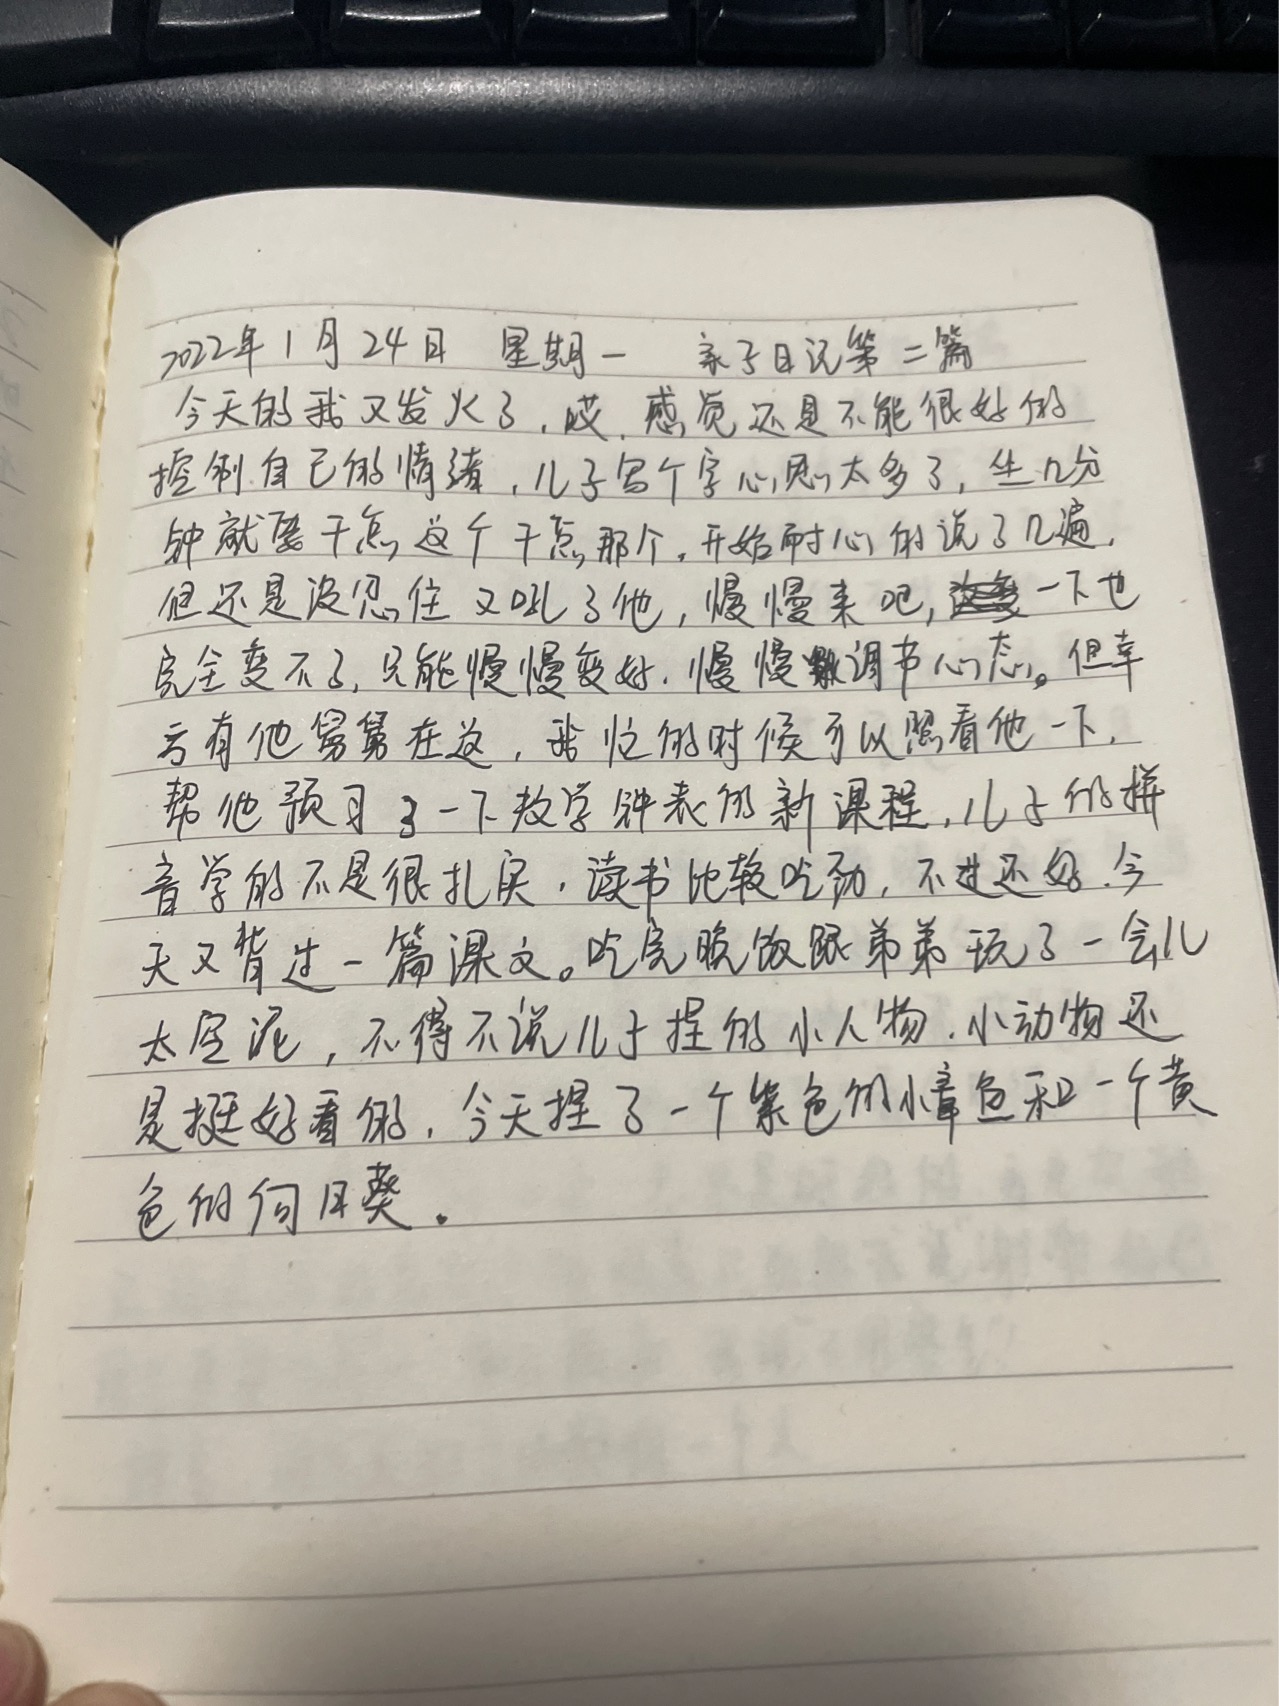 2022年1月24日 星期一 亲子日记第二篇
今天的我又发火了,哎,感觉还是不能很好的
控制自己的情绪,儿子写个字心思太多了,坐几分
钟就要干怎这个干怎那个,开始耐心的说了几遍,
但还是没忍住又吼了他,慢慢来吧,一下也
完全变不了,只能慢慢变好,慢慢调节心态。但幸
亏有他舅舅在这,我忙的时候可以照看他一下,
帮他预习了一下数学钟表的新课程,儿子的拼
音学的不是很扎实,读书比较吃劲,不过还好,今
天又背过一篇课文。吃完晚饭跟弟弟玩了一会儿
太空泥,不得不说儿子捏的小人物,小动物还
是挺好看的,今天捏了一个紫色的小章鱼和一个黄
色的向日葵。